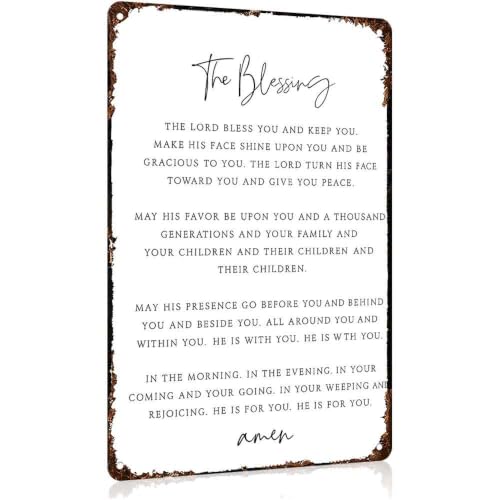 The Blessing
THE LORD BLESS YOU AND KEEP YOU.
MAKE HIS FACE SHINE UPON YOU AND BE
GRACIOUS TO YOU. THE LORD TURN HIS FACE
TOWARD YOU AND GIVE YOU PEACE.
MAY HIS FAVOR BE UPON YOU AND A THOUSAND
GENERATIONS AND YOUR FAMILY AND
YOUR CHILDREN AND THEIR CHILDREN AND
THEIR CHILDREN.
MAY HIS PRESENCE GO BEFORE YOU AND BEHIND
YOU AND BESIDE YOU. ALL AROUND YOU AND
WITHIN YOU. HE IS WITH YOU. HE IS WTH YOU.
IN THE MORNING. IN THE EVENING. IN YOUR
COMING AND YOUR GOING. IN YOUR WEEPING AND
REJOICING. HE IS FOR YOU. HE IS FOR YOU.
amen